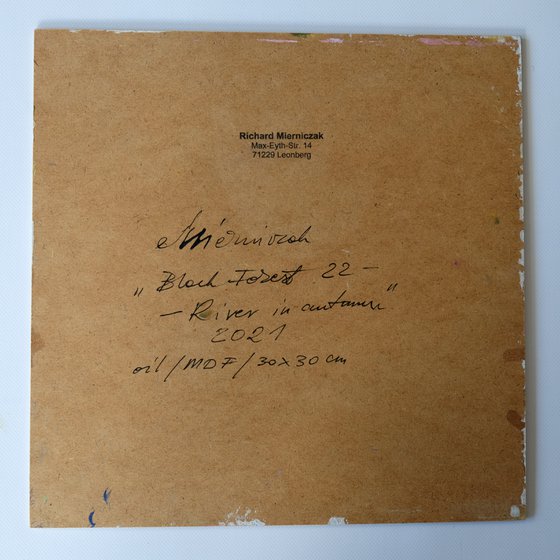 Richard Mierniczak
Max-Eyth-Str. 14
71229 Leonberg
Mierniczak
„Black Forest 22 –
– River in autumn"
2021
oil / MDF / 30x30 cm